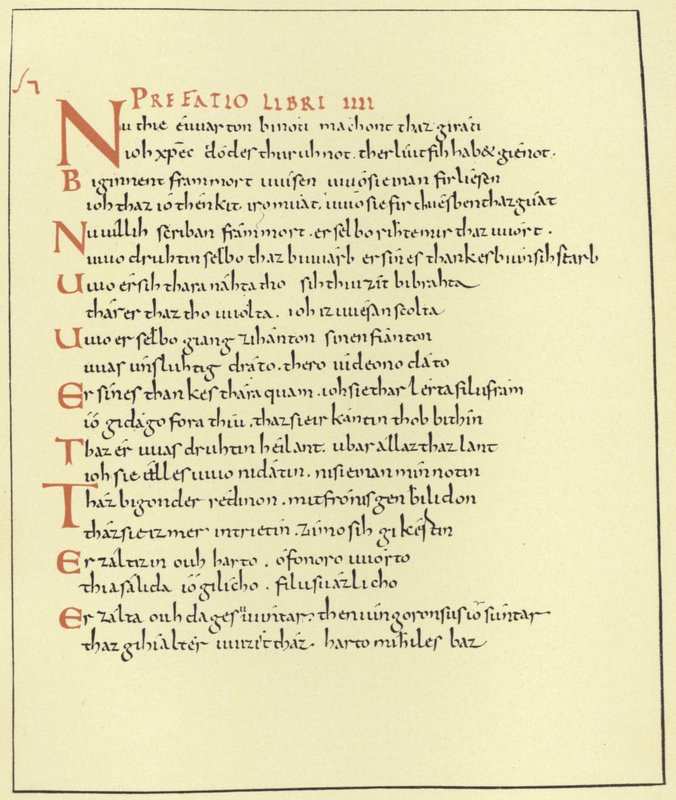 PREFATIO LIBRI IIII
Nu thie éuuarton bi noti machont thaz giráti
ioh xpec dódes thuruh not . ther líut sih hab& giéinot .
Biginnent frammort uuísen uuío sie man firliesen
ioh thaz ió thenkit, iro muat, uuuo sie fir chiésben thaz gúat
Nu uuíllih scriban frámmort . er selbo rihte mir thaz uuort .
uuuo druhtin selbo thaz biuuarb er sines thankes bi unsih starb
Uuuo er sih thara náhta tho sih thiu zít bibrahta
thár er thaz tho uuolta . ioh iz uuesan scolta
Uuuo er selbo giang zi hánton sinen fíanton
uuas únsluhtig dráto . thero uideono dáto
Er sínes thankes thára quam . ioh sie thar lérta filu fram
ió gidágo fora thiu . thaz sie irkántin thoh bi thiu
Thaz ér uuas druhtin héilant . ubar állaz thaz lant
ioh sie élles uuuo ni dátin . ni sie man mín notin
Thár bigonder rédinon . mit frónisgen bílidon
thár sie iz mer intríetin . zi imo sih gikértin
Er zálta in ouh harto . ófonoro uuórto
thia sálida ió gilícho . filu suázlicho
Er zálta ouh dages uuítar . then uuíngoronsusió súntar
thaz gihialter uuízit thár . harto mihiles baz